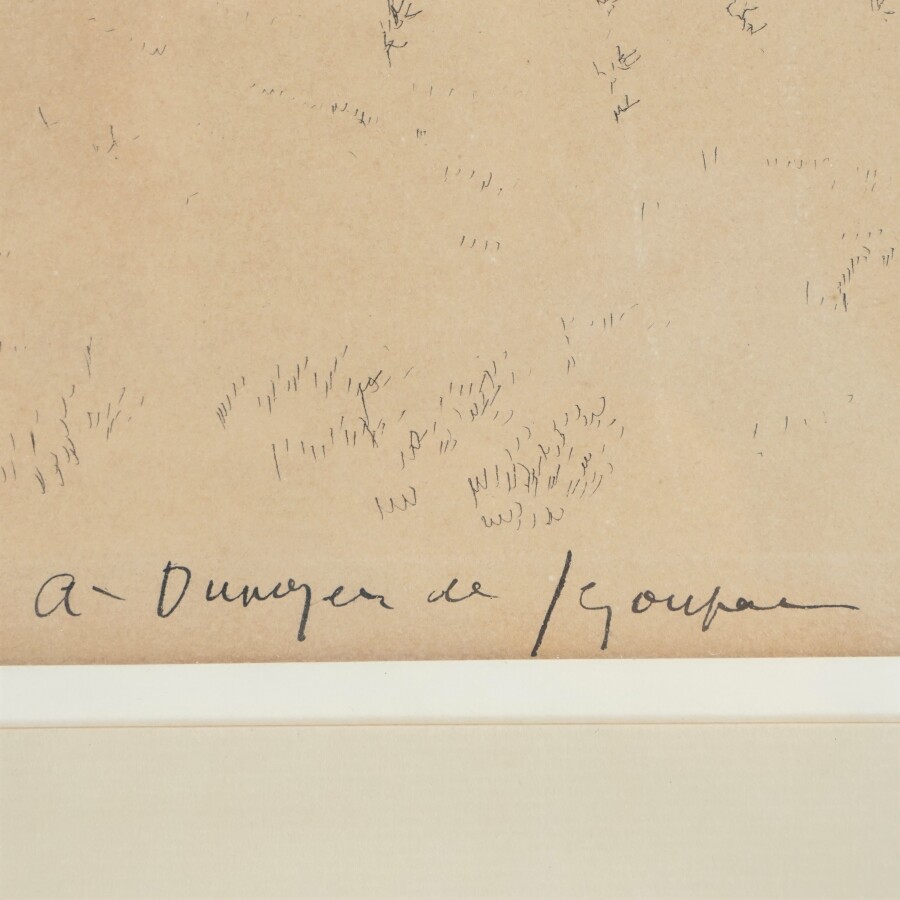 A - Dunoyer de Segonzac